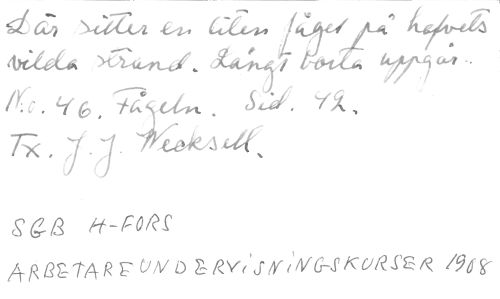 Där sitter en liten fågel på hafvets
vilda strand. Långt borta uppgår..
No. 46. Fågeln. Sid. 42.
Tx. J. J. Wecksell.
SGB H-FORS
ARBETAREUNDERVISNINGSKURSER 1908